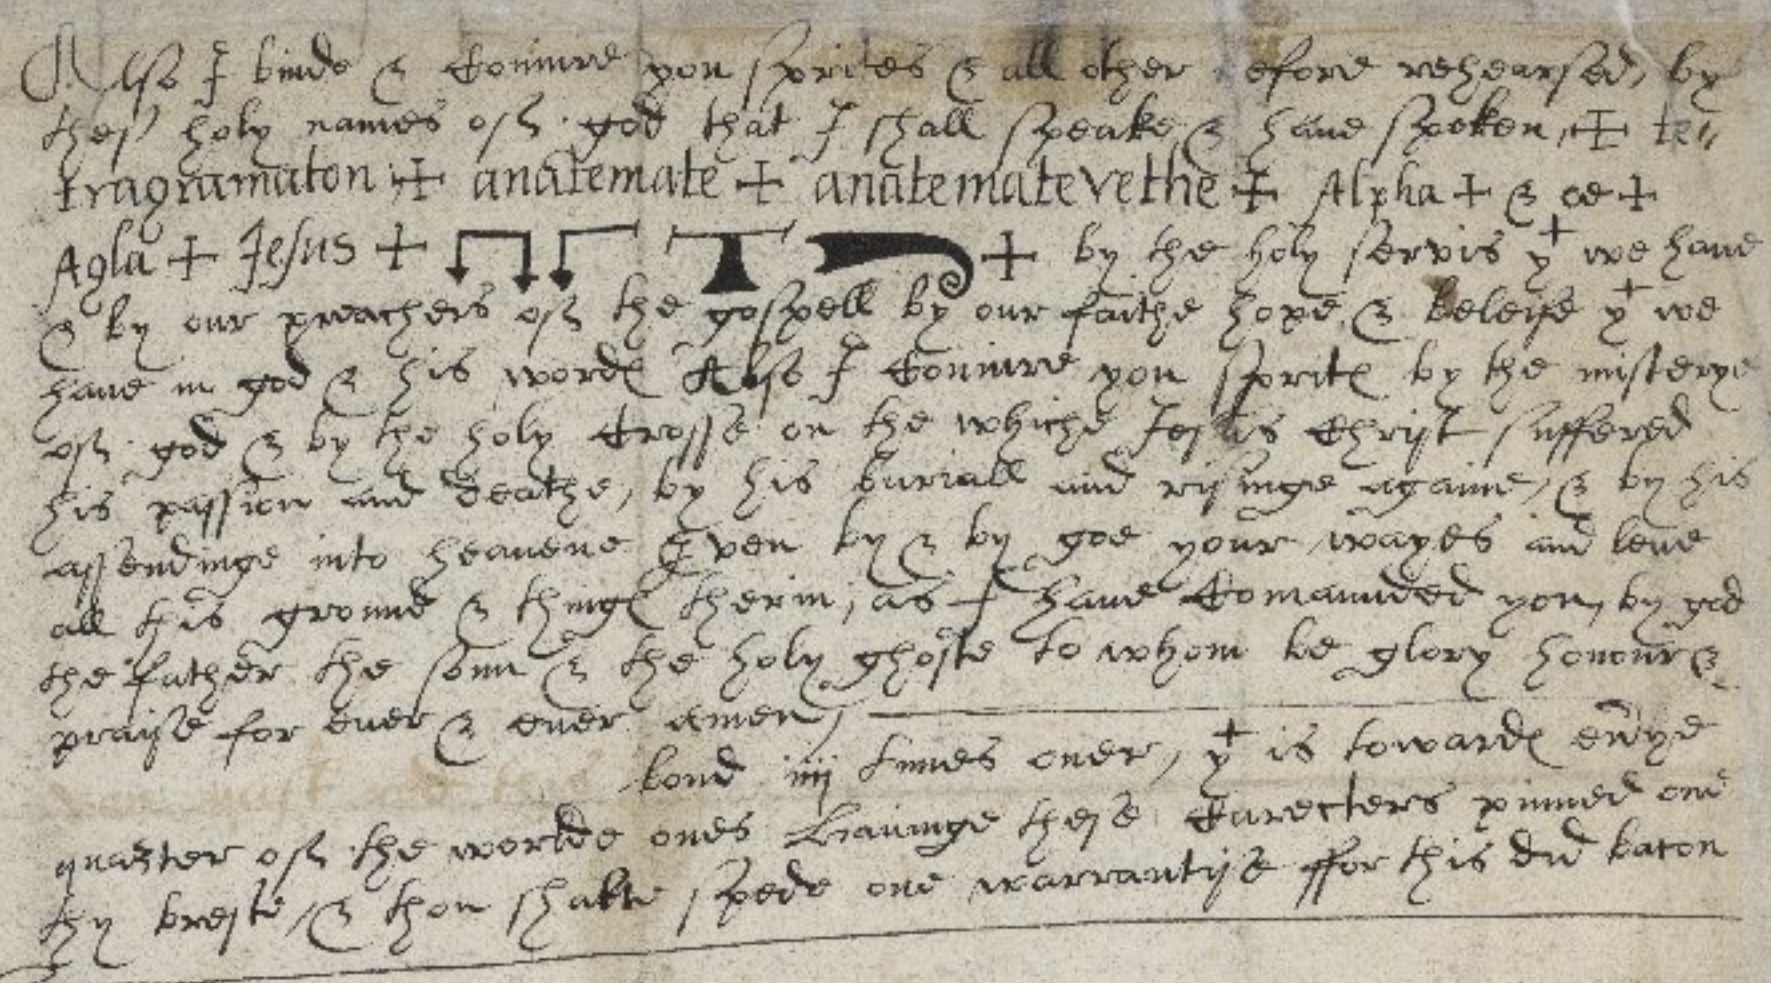 Also I binde & Coniure you sprites & all other before rehearsed, by
thes holy names off god that I shall speake, & haue spoken, + te〃
tragramaton + anatemate + anatematevethe + Alpha + & oe +
Agla + Jesus + + by the holy servis yt we haue
& by our preachers off the gospell by our faithe hope & beleife yt we
haue in god & his wordes Also I Coniure you sprites by the misterye
off god & by the holy Crosse on the whiche Jesus Christ suffered
his passion and deathe, by his buriall and risinge againe, & by his
assendinge into heauene Even by & by goe your wayes and leue
all this ground & thinges therin, as I haue Comaunded you, by god
the father the sonn & the holy ghoste to whom be glory honour &
praise for euer & euer amen,
bond iiij times ouer, yt is towardes eurye
quarter off the worlde ones Hauinge these Carecters pinned one
thy breste, & thou shalte spede one warrantise ffor this did bacon